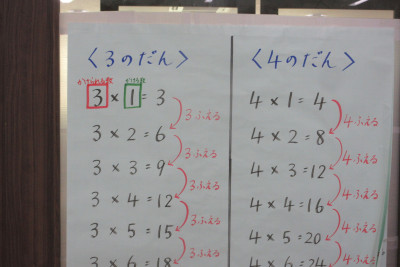 〈3のだん〉
かけられる数 かける数
3 × 1 = 3
3ふえる
3 × 2 = 6
3ふえる
3 × 3 = 9
3ふえる
3 × 4 = 12
3ふえる
3 × 5 = 15
3ふえる
3 × 6 = 18
〈4のだん〉
4 × 1 = 4
4ふえる
4 × 2 = 8
4ふえる
4 × 3 = 12
4ふえる
4 × 4 = 16
4ふえる
4 × 5 = 20
4ふえる
4 × 6 = 24